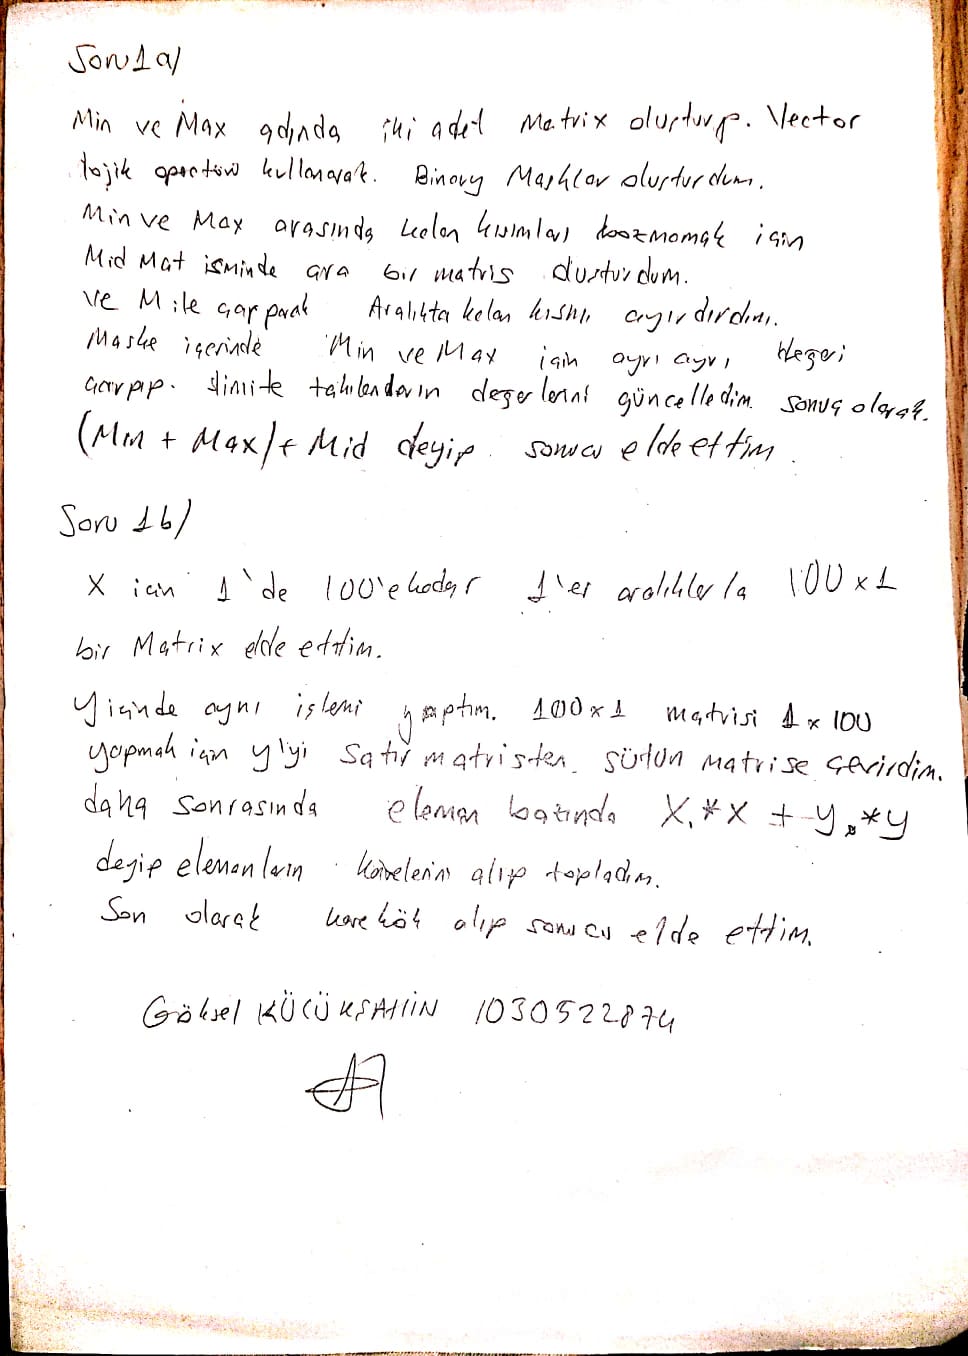 Soru 1 a/
Min ve Max adında iki adet Matrix oluşturup. Vector
lojik operatörü kullanarak. Binary Maskler oluşturdum.
Min ve Max arasında kalan kısımları bozmamak için
Mid Mat isminde ara bir matris oluşturdum.
ve M ile çarparak Aralıkta kalan kısmı ayırdırdım.
Maske içerinde Min ve Max için ayrı ayrı değeri
çarpıp. limite takılanların değerlerini güncelledim. sonuç olarak.
(Min + Max) + Mid deyip sonucu elde ettim.
Soru 1b/
X için 1'de 100'e kadar 1'er aralıklarla 100 x 1
bir Matrix elde ettim.
Y içinde aynı işlemi yaptım. 100 x 1 matrisi 1 x 100
yapmak için y'yi Satır matristen. sütun matrise çevirdim.
daha sonrasında eleman bazında X.*X + y.*y
deyip elemanların karelerini alıp topladım.
Son olarak karekök alıp sonucu elde ettim.
Göksel KÜÇÜKŞAHİN 1030522874